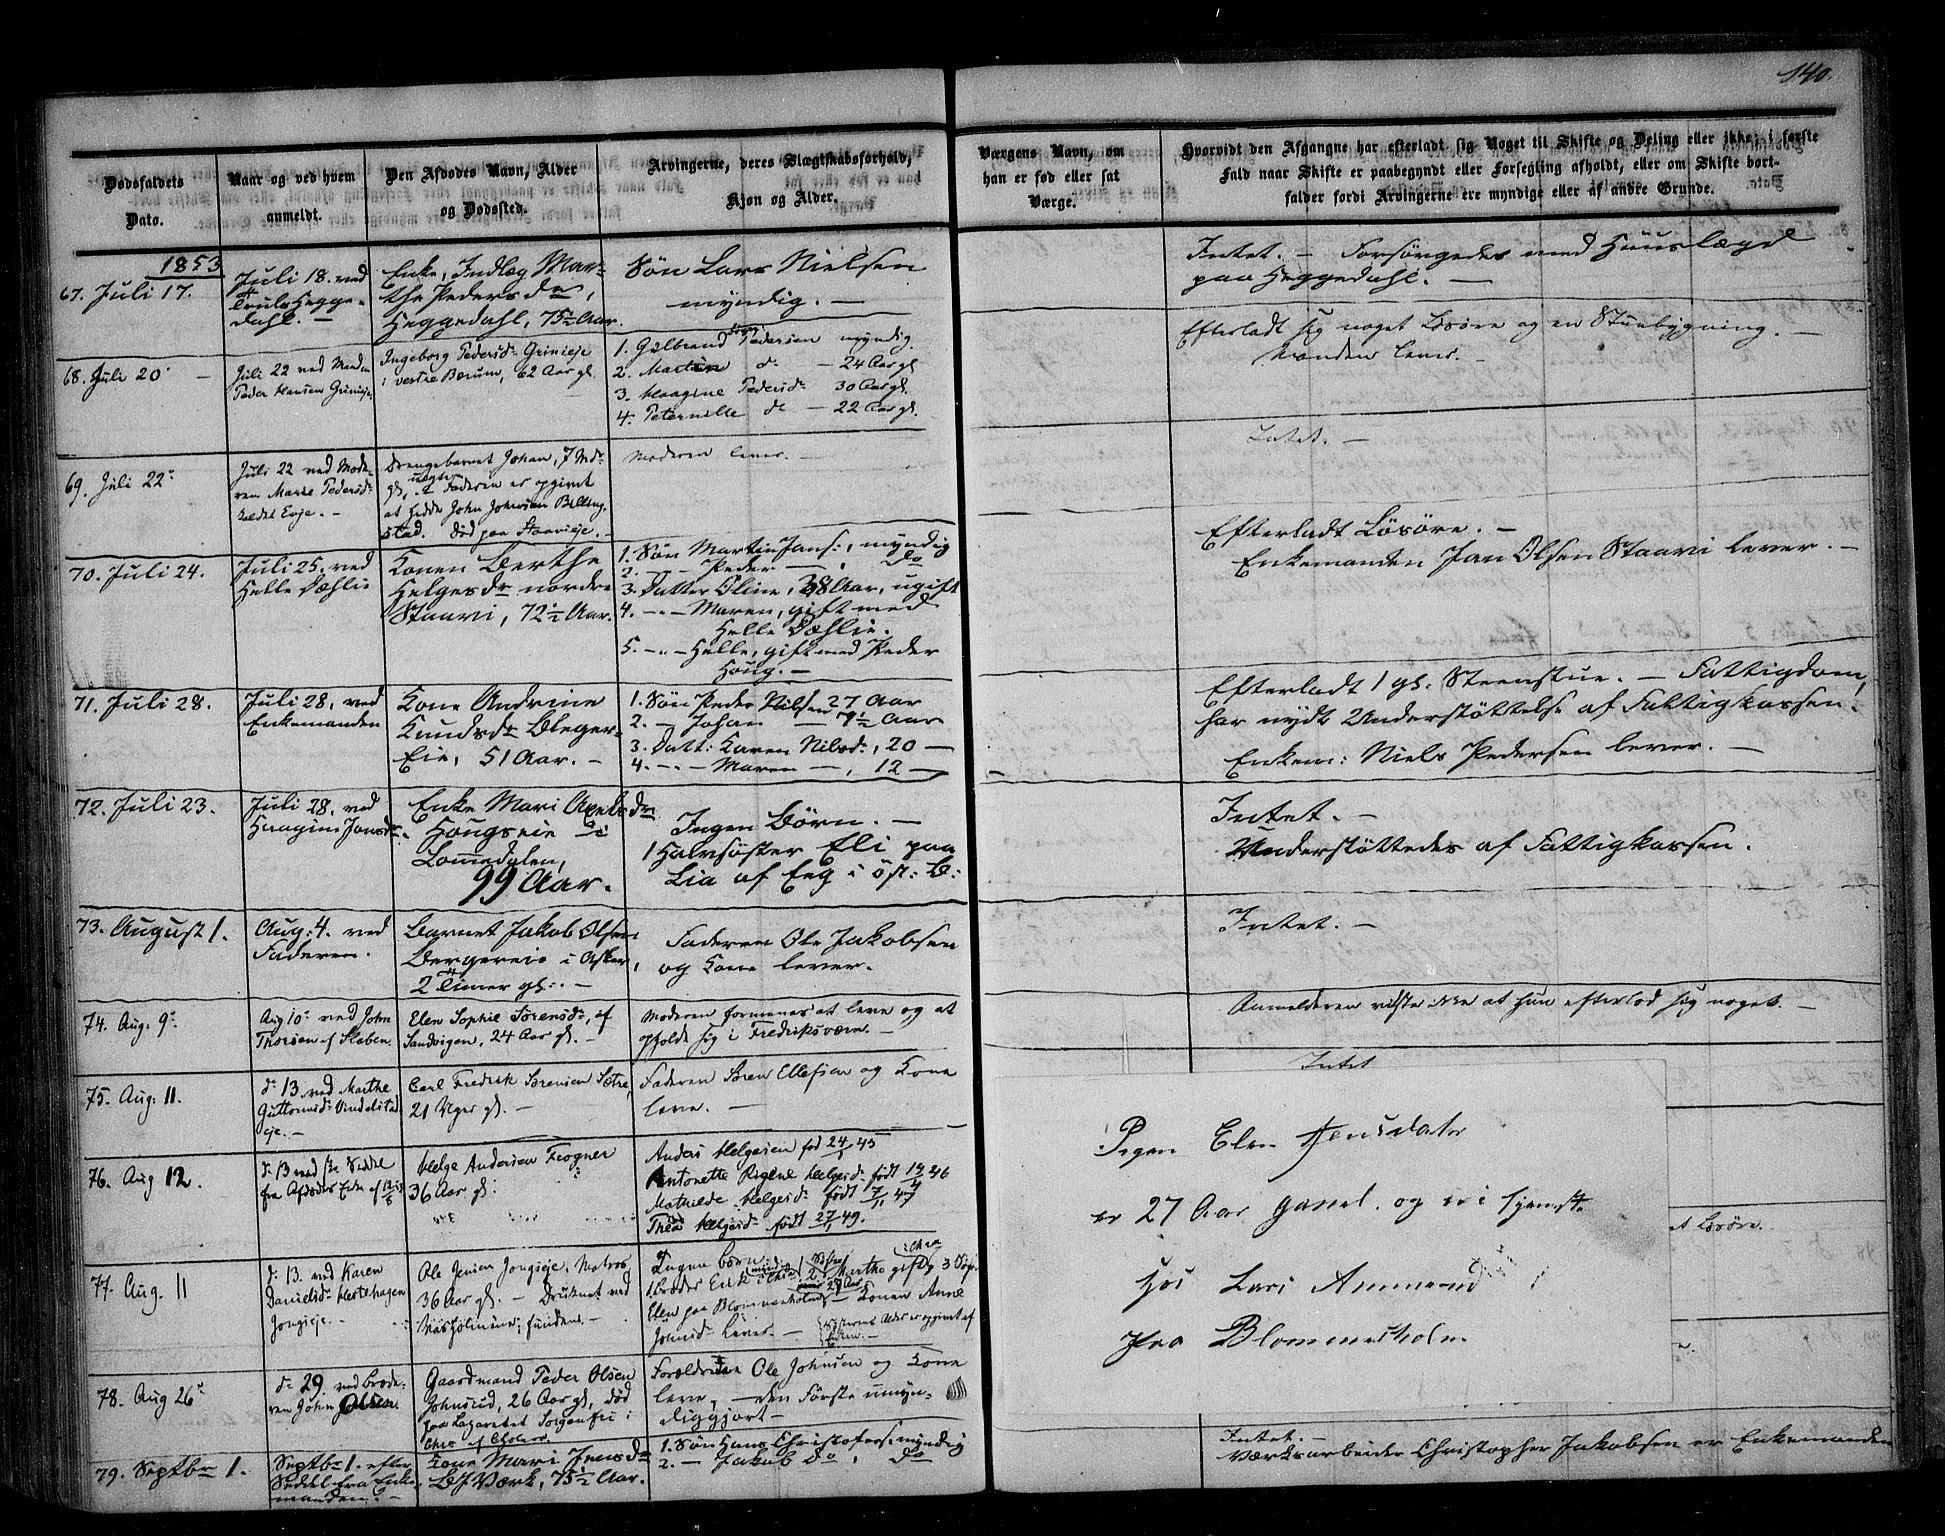 140.
Dødsfaldets
Dato.
Naar og ved hvem
anmeldt.
Den Afdødes Navn, Alder
og Dødssted.
Arvingerne, deres Slægtskabsforhold,
Kjøn og Alder.
Værgens Navn, om
han er fød eller sat
Værge.
Hvorvidt den Afgangne har efterladt sig Noget til Skifte og Deling eller ikke; i første
Fald naar Skifte er paabegyndt eller Forsegling afholdt, eller om Skifte bort-
falder fordi Arvingerne ere myndige eller af andre Grunde.
1853
67. Juli 17.
Juli 18. ved
Truls Hegge-
dahl. —
Enke, Indlæg Mar-
the Pedersdr,
Heggedahl, 75½ Aar.
Søn Lars Nielsen
myndig. —
Intet. — Forsørgedes med Huuslægd
paa Heggedahl. —
68. Juli 20. —
Juli 22 ved Manden
Peder Hansen Grinieje
Ingeborg Pedersdr Grinieje
i vestre Bærum, 62 Aar gl.
1. Gulbrand Pedersen myndig.
2. Martin do — 24 Aar gl.
3. Haagine Pedersdr 30 Aar gl.
4. Peternille do — 22 Aar gl.
Efterladt sig noget Løsøre og en Stuebygning. —
Manden lever. —
69. Juli 22.
Juli 22 ved Mode-
ren Marie Pedersdr
Evje. —
Drengebarnet Johan, 7 Mdr
gl, uægte Faderen er opgivet
at hedde John Johnsen Billing-
stad. Død paa Staavieje. —
Moderen lever. —
Intet. —
70. Juli 24.
Juli 25. ved
Helle Dæhlie
Konen Berthe
Helgesdr nordre
Staavi, 72½ Aar.
1. Søn Martin Jans:, myndig
2. — Peder —, do
3. Datter Oline, 38 Aar, ugift
4. -"- Maren, gift med
Helle Dæhlie.
5. -"- Helle, gift med Peder
Houg. —
Efterladt Løsøre. —
Enkemanden Jan Olsen Staavi lever. —
71. Juli 28.
Juli 28. ved
Enkemanden
Kone Andrine
Knudsdr Bleger-
Eie, 51 Aar. —
1. Søn Peder Nilsen 27 Aar
2. — Johan — 7½ Aar
3. Datt: Karen Nilsdr, 20 —
4. -"- Maren —, 12 —
Efterladt 1 gl. Steenstue. — Fattigdom,
har nydt Understøttelse af Fattigkassen.
Enkem: Niels Pedersen lever. —
72. Juli 23.
Juli 28. ved
Haagine Jansdr.
Enke Mari Axelsdr
Hougseie i
Lommedalen,
99 Aar.
Ingen Børn. —
1 Halvsøster Eli paa
Lia af Eeg i Øst: B:
Intet. —
Understøttedes af Fattigkassen.
73. August 1.
Aug: 4. ved
Faderen.
Barnet Jakob Olsen
Bergereie i Asker,
2 Timer gl:. —
Faderen Ole Jakobsen
og Kone lever.
Intet. —
74. Aug: 9.
Aug 10. ved John
Thorsen af Slæben.
Elen Sophie Sørensdr, af
Sandvigen, 24 Aar gl. —
Moderen formenes at leve og at
opholde sig i Fredriksværn. —
Anmelderen vidste ikke at hun efterlod sig noget. —
75. Aug: 11.
do 13. ved Marthe
Guttormsdr Vindelstad-
eje. —
Carl Fredrik Sørensen Sætre,
21 Uger gl. —
Faderen Søren Ellefsen og Kone
leve. —
Intet
76. Aug 12.
do 13 ved skr. Seddel
fra Afdødes Enke af 12/8 53
Helge Andersen Frogner
36 Aar gl:
Anders Helgesen fød 24/1 45
Antonette Regine Helgesdr født 14/4 46
Mathilde Helgesdr født 7/1 47
Thea Helgesdr født 27/1 49.
77. Aug. 11
do 13. ved Karen
Danielsdr Hestehagen
Jongseje. —
Ole Jensen Jongseje, Matros
36 Aar gl. — Druknet ved
Næsholmene; funden. —
Ingen børn
1. Broder Erik myndig Marthe gift 3 Søs.
Elen paa Blommenholm — Konen Anne
Johnsdr Lever. — Søstrenes Alder er opgivet af
Enken. —
78. Aug 26.
do 29. ved Brode-
ren John Olsen.
Gaardmand Peder Olsen
Johnsrud, 26 Aar gl, død
paa Lazarettet Sorgenfri i
Chra af Cholera
Forældrene Ole Johnsen og Kone
leve, — den Første umyn-
diggjort —
79. Septbr 1.
Septbr 1. efter
Seddel fra Enke-
manden. —
Kone Mari Jensdr
BJVærk, 75½ Aar.
1. Søn Hans Christofers: myndig
2. — Jakob Do, do
Intet. —
Værksarbeider Christopher Jakobsen er Enkemanden
Pigen Elen Jensdatter
er 27 Aar gamel. og er i tjeneste
hos Lars Ammond
Fra Blommesholm
Løsøre.